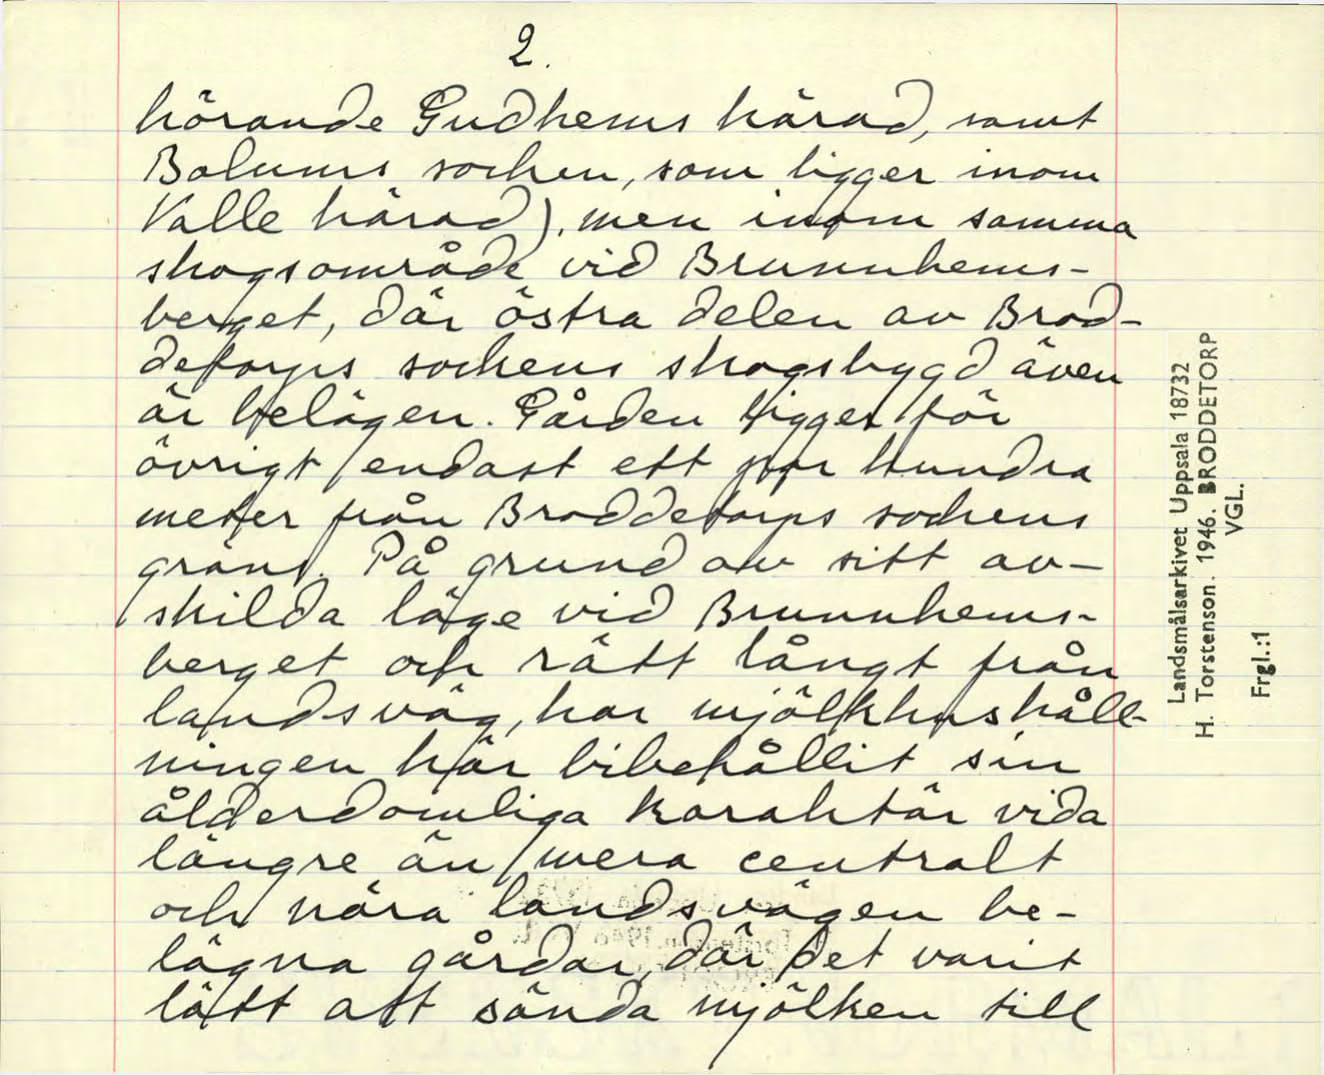 2.
hörande Gudhems härad, samt
Bolums socken, som ligger inom
Valle härad), men inom samma
skogsområde vid Brunnhems-
berget, där östra delen av Brod-
detorps sockens skogsbygd även
är belägen. Gården ligger för
övrigt endast ett par hundra
meter från Broddetorps sockens
gräns. På grund av sitt av-
skilda läge vid Brunnhems-
berget och rätt långt från
landsväg, har mjölkhushåll-
ningen här bibehållit sin
ålderdomliga karaktär vida
längre än mera centralt
och nära landsvägen be-
lägna gårdar, där det varit
lätt att sända mjölken till
Landsmålsarkivet Uppsala 18732
H. Torstenson. 1946. BRODDETORP
VGL.
Frgl.:1